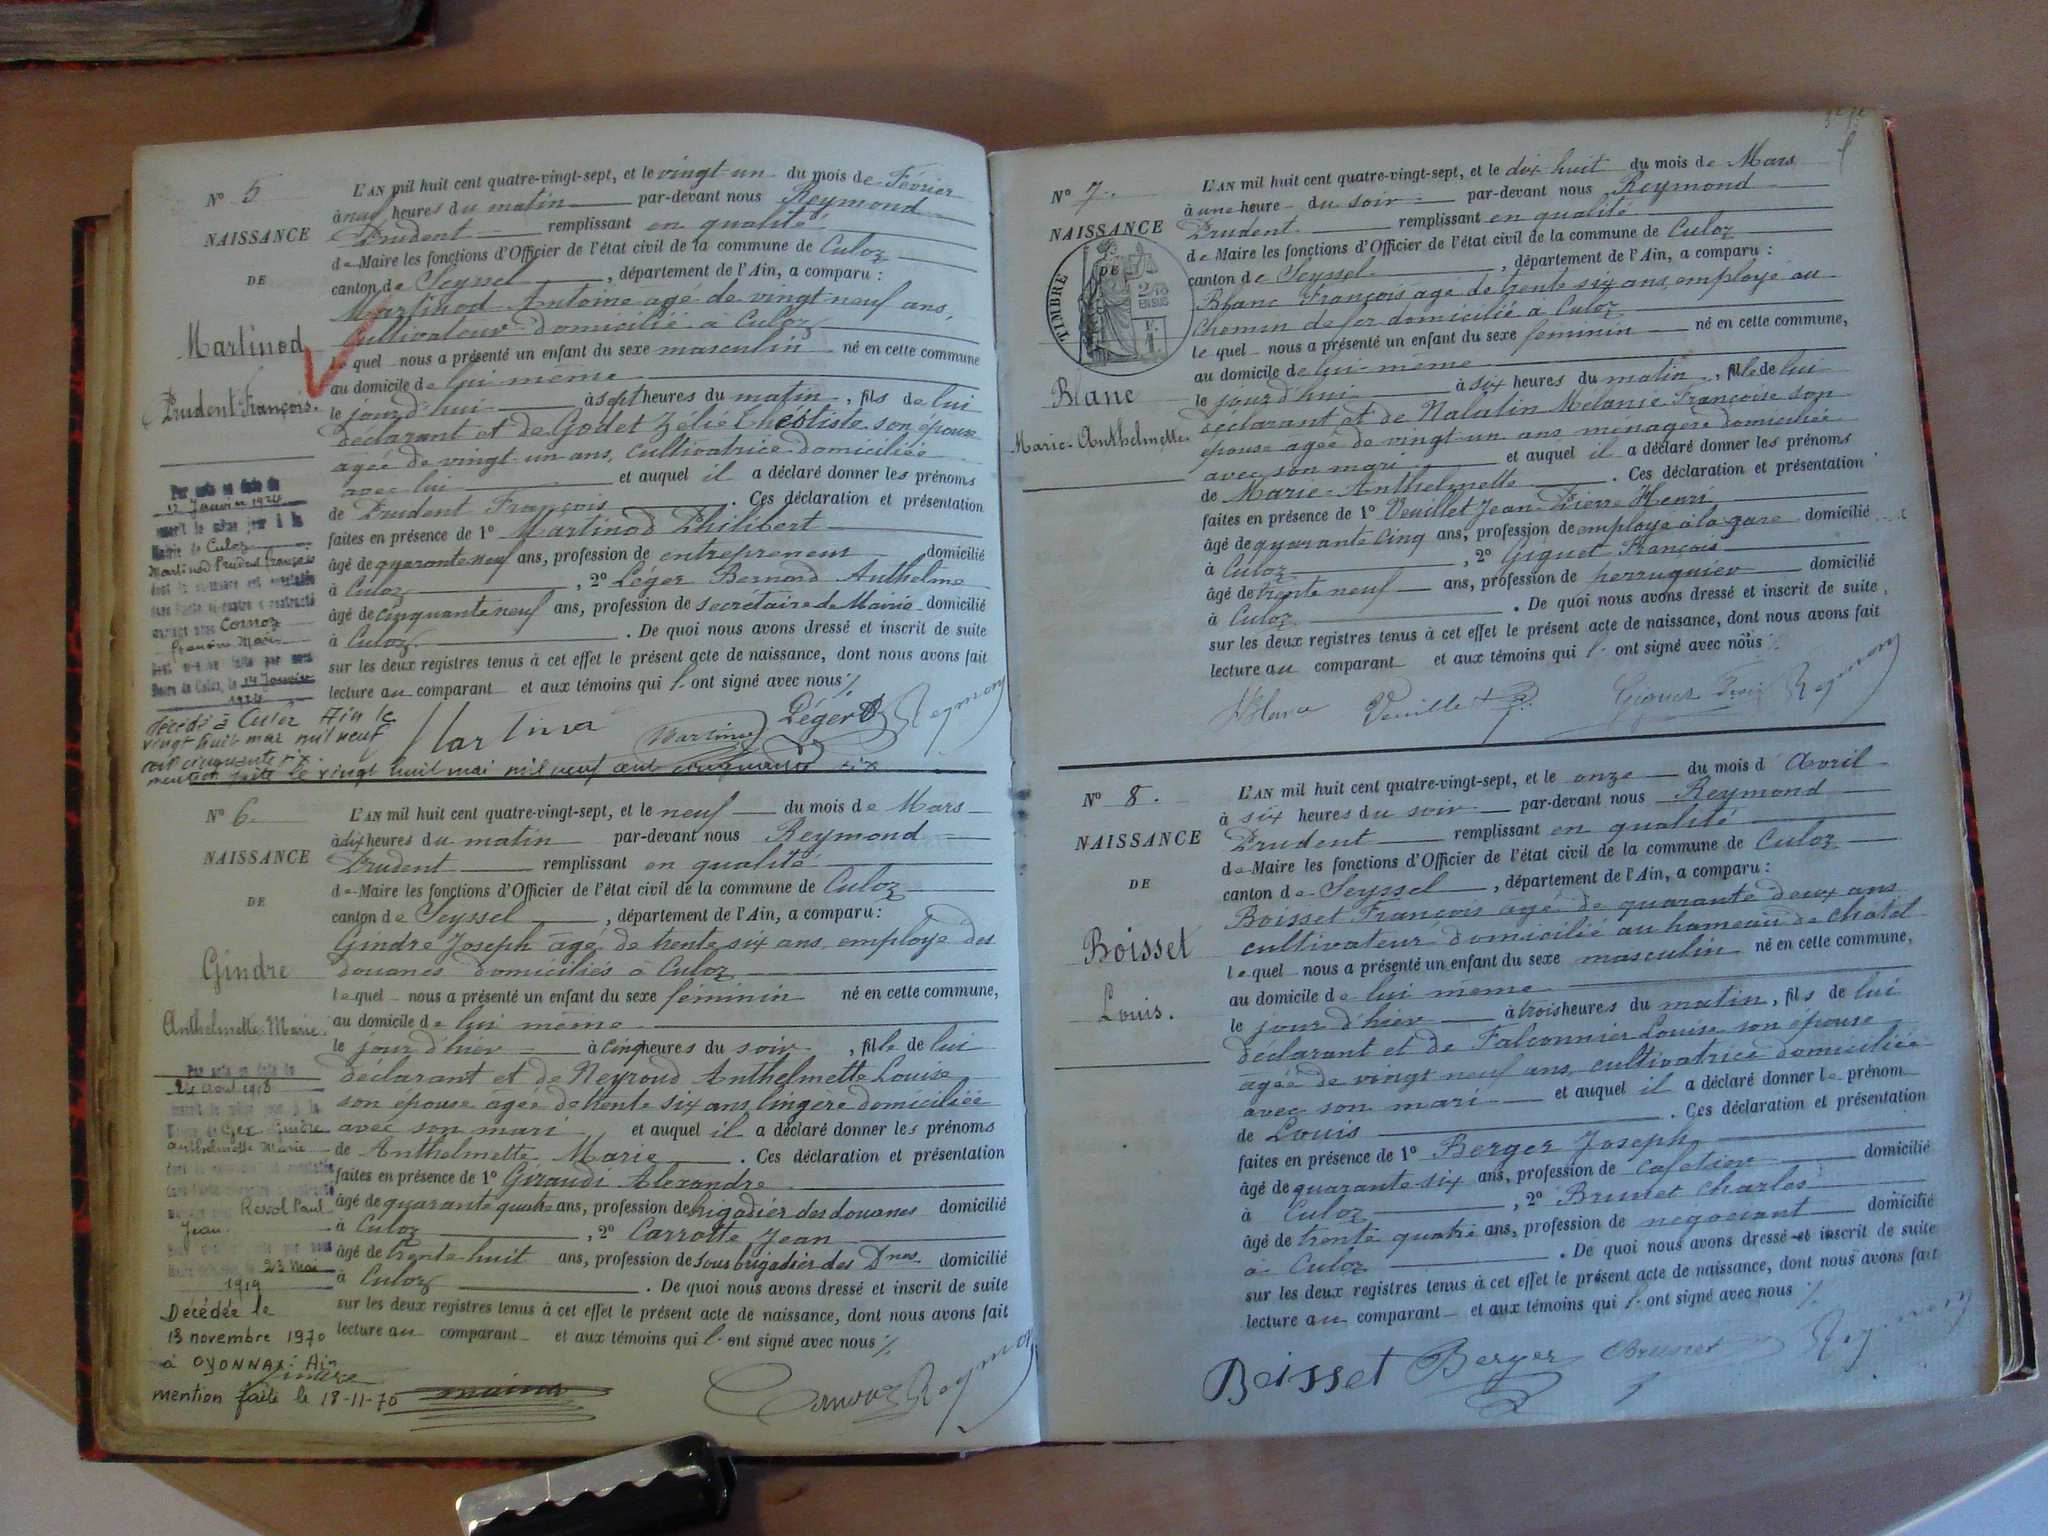 N° 5
NAISSANCE
DE
Martinod
Prudent François.
Par acte en date du
12 Janvier 1924
inscrit le même jour à la
Mairie de Culoz
Martinod Prudent François
dont la naissance est constatée
dans l'acte ci-contre a contracté
mariage avec Cornoz
Francine Marie
Dont mention faite par nous
Maire de Culoz, le 14 Janvier
1924
décédé à Culoz Ain le
vingt huit mai mil neuf
cent cinquante six.
mention faite le vingt huit mai mil neuf cent cinquante six
L'AN mil huit cent quatre-vingt-sept, et le vingt-un du mois de Février
à neuf heures du matin par-devant nous Reymond
Prudent remplissant en qualité
de Maire les fonctions d'Officier de l'état civil de la commune de Culoz
canton de Seyssel, département de l'Ain, a comparu :
Martinod Antoine agé de vingt-neuf ans,
cultivateur domicilié à Culoz
le quel nous a présenté un enfant du sexe masculin né en cette commune
au domicile de lui même
le jour d'hui à sept heures du matin, fils de lui
déclarant et de Godet Zélie Théotiste son épouse
agée de vingt-un ans, cultivatrice domiciliée
avec lui et auquel il a déclaré donner les prénoms
de Prudent François. Ces déclaration et présentation
faites en présence de 1° Martinod Philibert
âgé de quarante neuf ans, profession de entrepreneur domicilié
à Culoz, 2° Léger Bernard Anthelme
âgé de cinquante neuf ans, profession de secrétaire de Mairie domicilié
à Culoz. De quoi nous avons dressé et inscrit de suite
sur les deux registres tenus à cet effet le présent acte de naissance, dont nous avons fait
lecture au comparant et aux témoins qui l'ont signé avec nous ⁒
Martinod Léger B Reymond
N° 6.
NAISSANCE
DE
Gindre
Anthelmette Marie.
Par acte en date du
24 Aout 1918
inscrit le même jour à la
Mairie de Gex Gindre
Anthelmette Marie
dont la naissance est constatée
dans l'acte ci-contre a contracté
mariage avec Revol Paul
Jean
23 Mai
1919
Décédée le
13 novembre 1970
à OYONNAX - Ain
mention faite le 18-11-70
L'AN mil huit cent quatre-vingt-sept, et le neuf du mois de Mars
à dix heures du matin par-devant nous Reymond
Prudent remplissant en qualité
de Maire les fonctions d'Officier de l'état civil de la commune de Culoz
canton de Seyssel, département de l'Ain, a comparu :
Gindre Joseph agé de trente six ans, employé des
douanes domiciliés à Culoz
le quel nous a présenté un enfant du sexe féminin né en cette commune,
au domicile de lui même
le jour d'hier à cinq heures du soir, fille de lui
déclarant et de Neyroud Anthelmette Louise
son épouse agée de trente six ans lingère domiciliée
avec son mari et auquel il a déclaré donner les prénoms
de Anthelmette Marie. Ces déclaration et présentation
faites en présence de 1° Giraudi Alexandre
âgé de quarante quatre ans, profession de brigadier des douanes domicilié
à Culoz, 2° Carrotte Jean
âgé de trente huit ans, profession de sous brigadier des Dnes domicilié
à Culoz. De quoi nous avons dressé et inscrit de suite
sur les deux registres tenus à cet effet le présent acte de naissance, dont nous avons fait
lecture au comparant et aux témoins qui l'ont signé avec nous ⁒
Gindre Reymond
N° 7.
NAISSANCE
TIMBRE DE
EN SUS
Blanc
Marie-Anthelmette.
L'AN mil huit cent quatre-vingt-sept, et le dix huit du mois de Mars
à une heure du soir par-devant nous Reymond
Prudent remplissant en qualité
de Maire les fonctions d'Officier de l'état civil de la commune de Culoz
canton de Seyssel, département de l'Ain, a comparu :
Blanc François agé de trente six ans, employé au
Chemin de fer domicilié à Culoz
le quel nous a présenté un enfant du sexe féminin né en cette commune,
au domicile de lui-même
le jour d'hui à six heures du matin, fille de lui
déclarant et de Nalatin Mélanie Françoise son
épouse agée de vingt-un ans ménagère domiciliée
avec son mari et auquel il a déclaré donner les prénoms
de Marie-Anthelmette. Ces déclaration et présentation
faites en présence de 1° Veuillet Jean-Pierre Henri
âgé de quarante cinq ans, profession de employé à la gare domicilié
à Culoz, 2° Giguet François
âgé de trente neuf ans, profession de perruquier domicilié
à Culoz. De quoi nous avons dressé et inscrit de suite,
sur les deux registres tenus à cet effet le présent acte de naissance, dont nous avons fait
lecture au comparant et aux témoins qui l'ont signé avec nous ⁒
Blanc Veuillet Giguet Reymond
N° 8.
NAISSANCE
DE
Boisset
Louis.
L'AN mil huit cent quatre-vingt-sept, et le onze du mois d'Avril
à six heures du soir par-devant nous Reymond
Prudent remplissant en qualité
de Maire les fonctions d'Officier de l'état civil de la commune de Culoz
canton de Seyssel, département de l'Ain, a comparu :
Boisset François agé de quarante deux ans
cultivateur domicilié au hameau de Châtel
le quel nous a présenté un enfant du sexe masculin né en cette commune,
au domicile de lui même
le jour d'hier à trois heures du matin, fils de lui
déclarant et de Falconnier Louise son épouse
agée de vingt neuf ans, cultivatrice domiciliée
avec son mari et auquel il a déclaré donner le prénom
de Louis. Ces déclaration et présentation
faites en présence de 1° Berger Joseph
âgé de quarante six ans, profession de cafetier domicilié
à Culoz, 2° Brunet Charles
âgé de trente quatre ans, profession de négociant domicilié
à Culoz. De quoi nous avons dressé et inscrit de suite
sur les deux registres tenus à cet effet le présent acte de naissance, dont nous avons fait
lecture au comparant et aux témoins qui l'ont signé avec nous ⁒
Boisset Berger Brunet Reymond